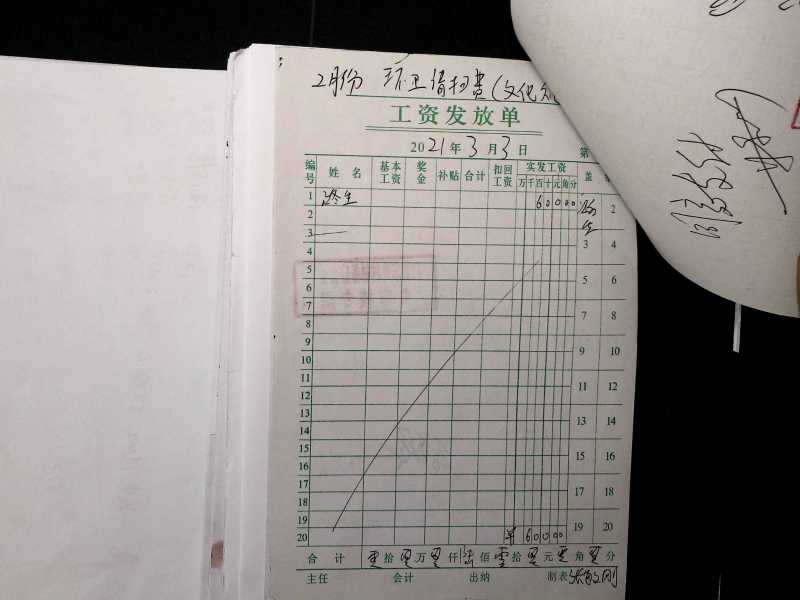 2月份 环卫清扫费(文化
工资发放单
2021年3月3日 第
编号 姓名 基本工资 奖金 补贴 合计 扣回工资 实发工资 盖
万 千 百 十 元 角 分
1 路生 60000 路生 2
2
3 3 4
4
5 5 6
6
7 7 8
8
9 9 10
10
11 11 12
12
13 13 14
14
15 15 16
16
17 17 18
18
19 19 20
20 ¥60000
合计 零拾零万零仟陆佰零拾零元零角零分
主任 会计 出纳 制表